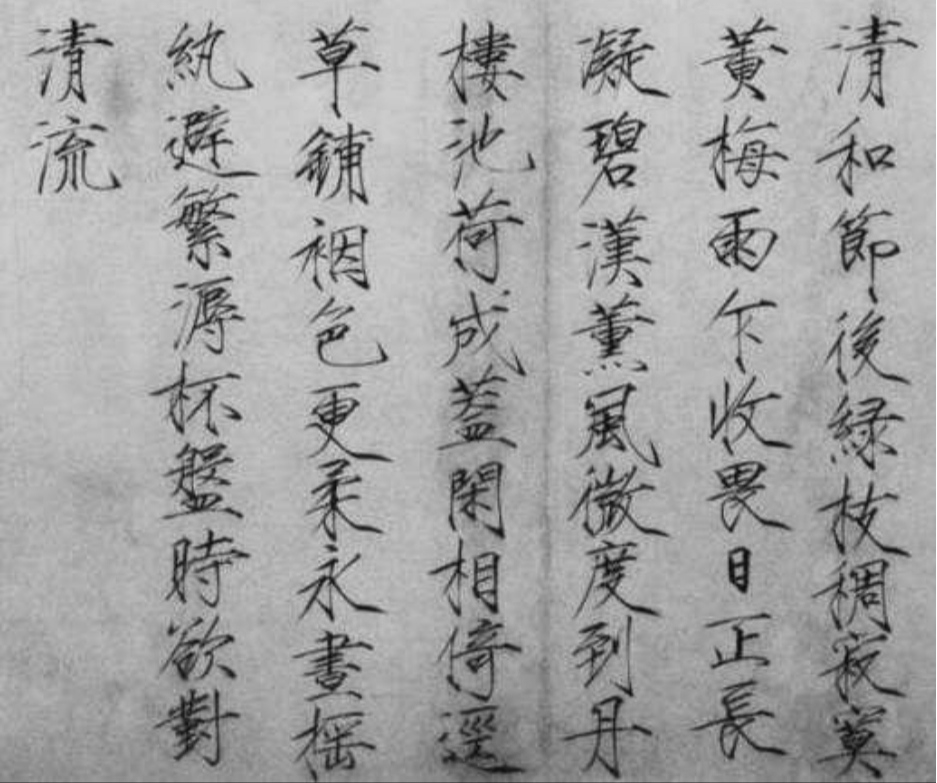 清和節後綠枝稠寂寞
黃梅雨乍收畏日正長
凝碧漢薰風微度到丹
樓池荷成蓋閑相倚逕
草鋪裀色更柔永晝搖
紈避繁溽杯盤時欲對
清流